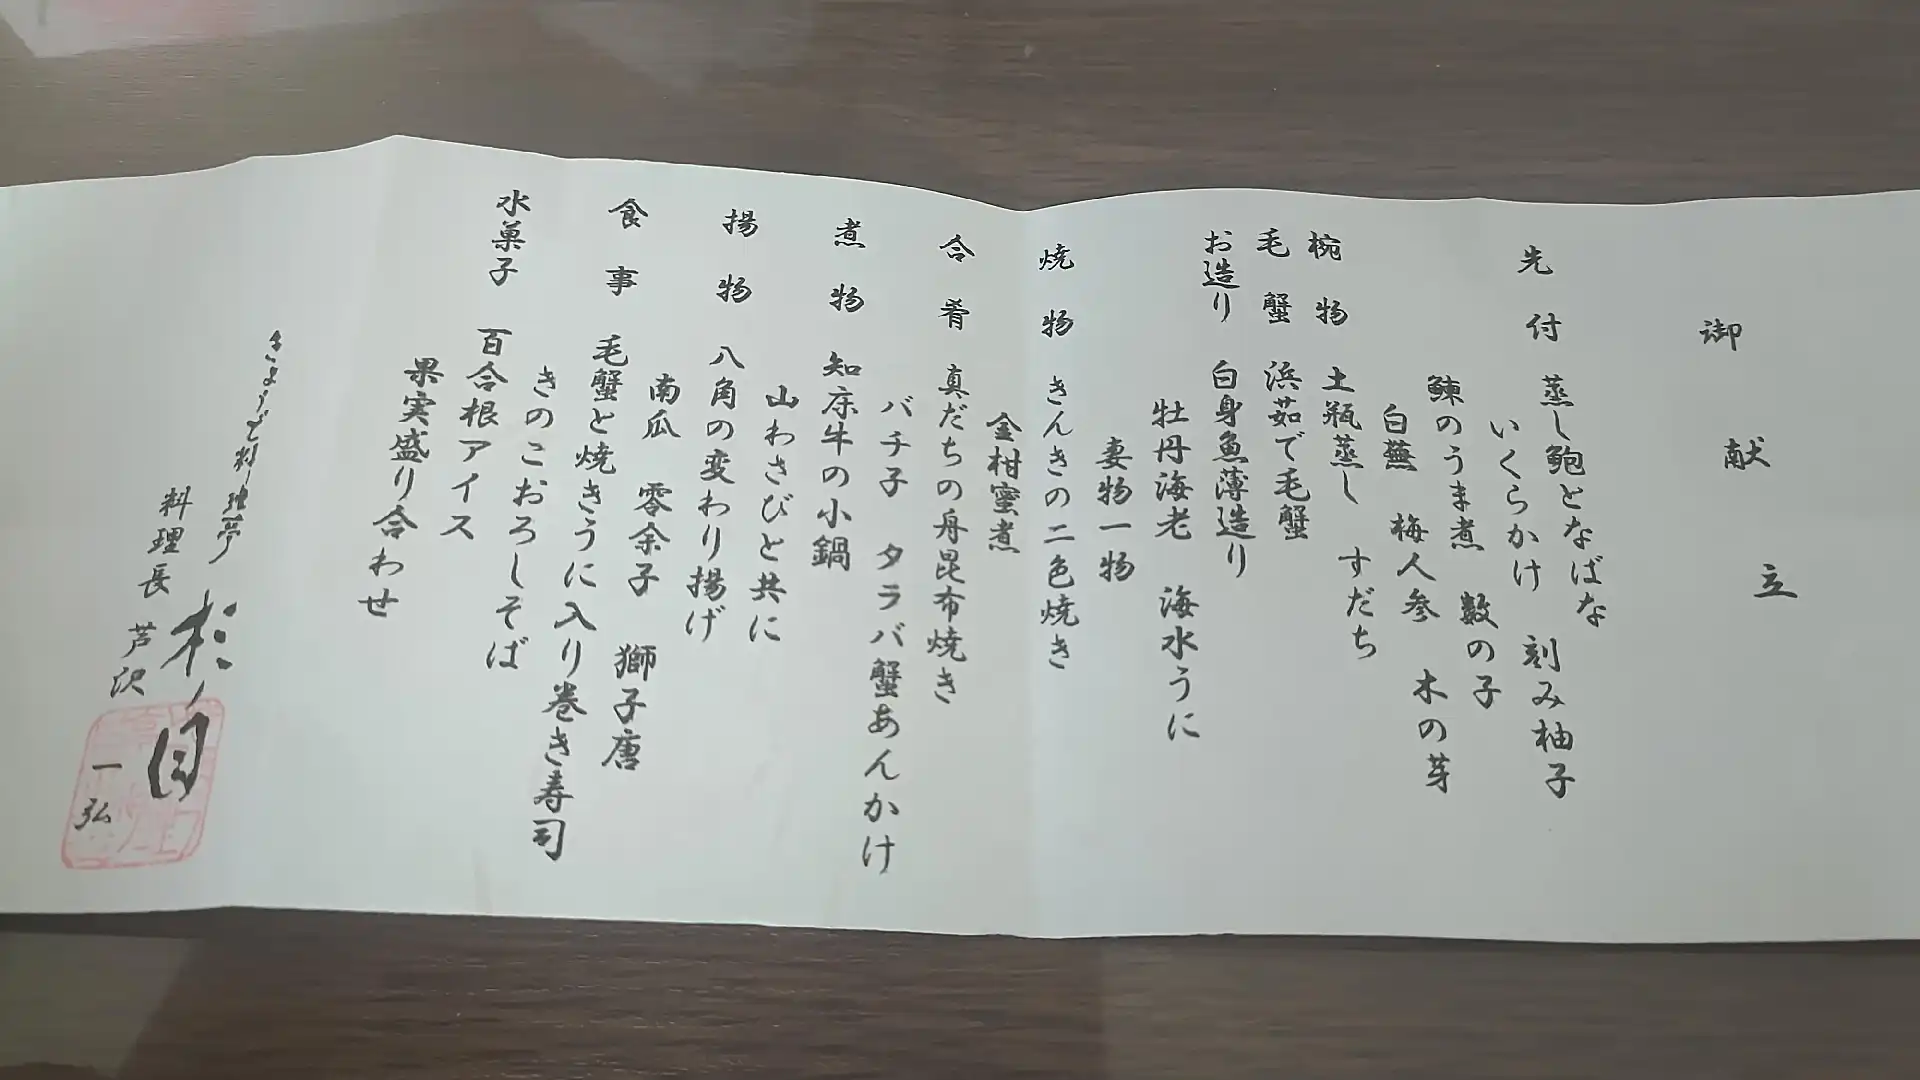 御献立
先付 蒸し鮑となばな
いくらかけ 刻み柚子
鰊のうま煮 数の子
白蕪 梅人参 木の芽
椀物 土瓶蒸し すだち
毛蟹 浜茹で毛蟹
お造り 白身魚薄造り
牡丹海老 海水うに
妻物一物
焼物 きんきの二色焼き
金柑蜜煮
合肴 真だちの舟昆布焼き
バチ子 タラバ蟹あんかけ
煮物 知床牛の小鍋
山わさびと共に
揚物 八角の変わり揚げ
南瓜 零余子 獅子唐
食事 毛蟹と焼きうに入り巻き寿司
きのこおろしそば
水菓子 百合根アイス
果実盛り合わせ
きょうど料理亭 杉ノ目
料理長 芦沢一弘